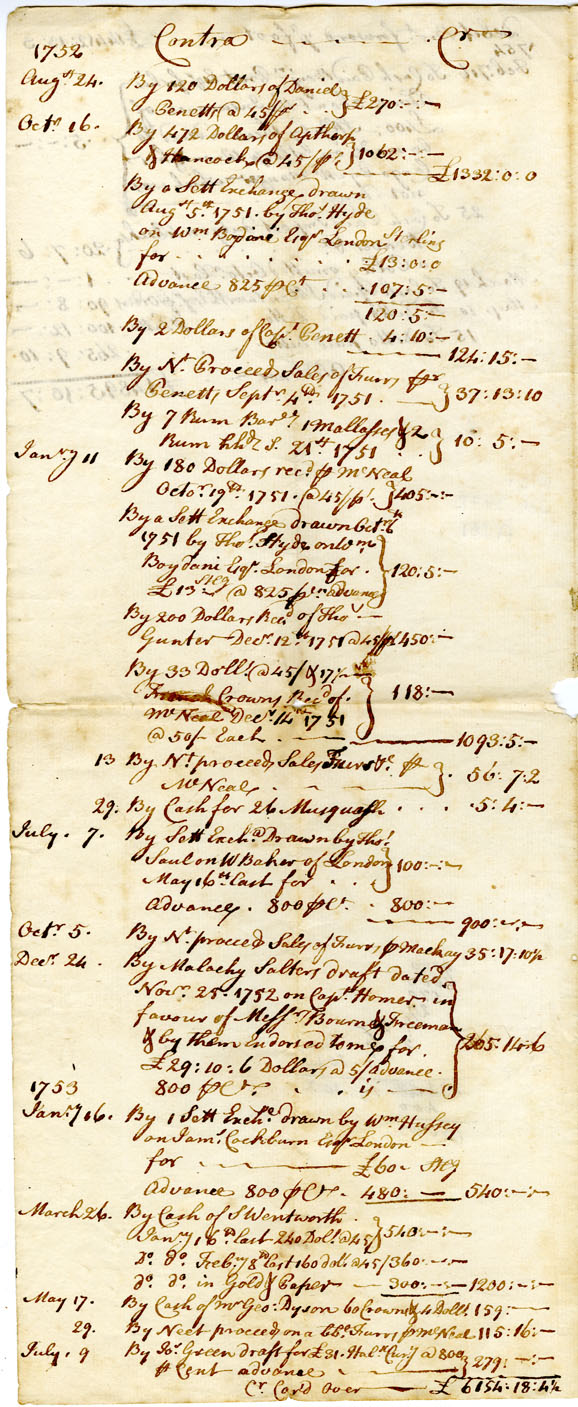 1752 Contra Cr
Augst 24. By 120 Dollars of Daniel
Benett @ 45/ pr } £270:-:-
Octr 16. By 472 Dollars of Apthorp
& Hancock @ 45/ } 1062:-:-
£1332:0:0
By a Sett Exchange drawn
Augst 5th 1751. by Thos Hyde
on Wm Esqr London Sterling
for £13:0:0
Advance 825 p Ct 107:5:-
120:5:-
By 2 Dollars of Capt Benett 4:10:-
124:15:-
By Nt Proceed Sales of Furrs pr
Benett, Septr 4th 1751. } 37:13:10
By 7 Rum Barrs 1 Mallasses & 2
Rum hhds S. 21st 1751 } 10:5:-
Janry 11 By 180 Dollars recd p Mc Neal
Octor 19th 1751. @ 45/ p } 405:-:-
By a Sett Exchange drawn Octr
1751 by Thos Hyde on Wm
Esqr London for
£13 Steg @ 825 p advance } 120:5:-
By 200 Dollars Recd of Thos
Gunter Decr 12th 1751 @ 45/ p £450:-
By 33 Dolls @ 45/ & 17
French Crowns Recd of
Mc Neal Decr 14th 1751
@ 50/ Each } 118:-
1093:5:-
13 By Nt proceed Sales Furrs p
Mc Neal } 56:7:2
29. By Cash for 26 Musquash 5:4:-
July. 7. By Sett Excha Drawn by Thos
Saul on W Baker of London
May 16th last for } 100:-:-
Advance. 800 p Ct. 800:-
900:-:-
Octr 5. By Nt proceed Sales of Furrs p Mackay 35:17:10½
Decr 24. By Malachy Salters draft dated
Novr 25. 1752 on Capt Homer in
favour of Messrs Bourne & Freeman
& by them Endorsed to me for
£29:10:6 Dollars @ 5/ advance.
800 p Ct is } 265:14:6
1753
Janry 16. By 1 Sett Exche drawn by Wm Hussey
on Jams Cockburn Esqr London
for £60 Steg
Advance 800 p Ct. 480:- 540:-:-
March 26. By Cash of S Wentworth
Janry 16th last 240 Doll @ 45 } 540:-:-
Do Do Febry 8th last 160 doll @ 45/ 360:-:-
do do in Gold & Paper 300:-:- 1200:-:-
May 17. By Cash of Mr Geo: Dyson 60 Crowns & 4 Doll. 159:-
29. By Neet proceed on a Furrs p Mc Neal 115:16:-
July. 9 By Jos. Green draft for £31. Hal Curry @ 800
p Cent advance } 279:-:-
Cr Cor'd Over £6154:18:4½